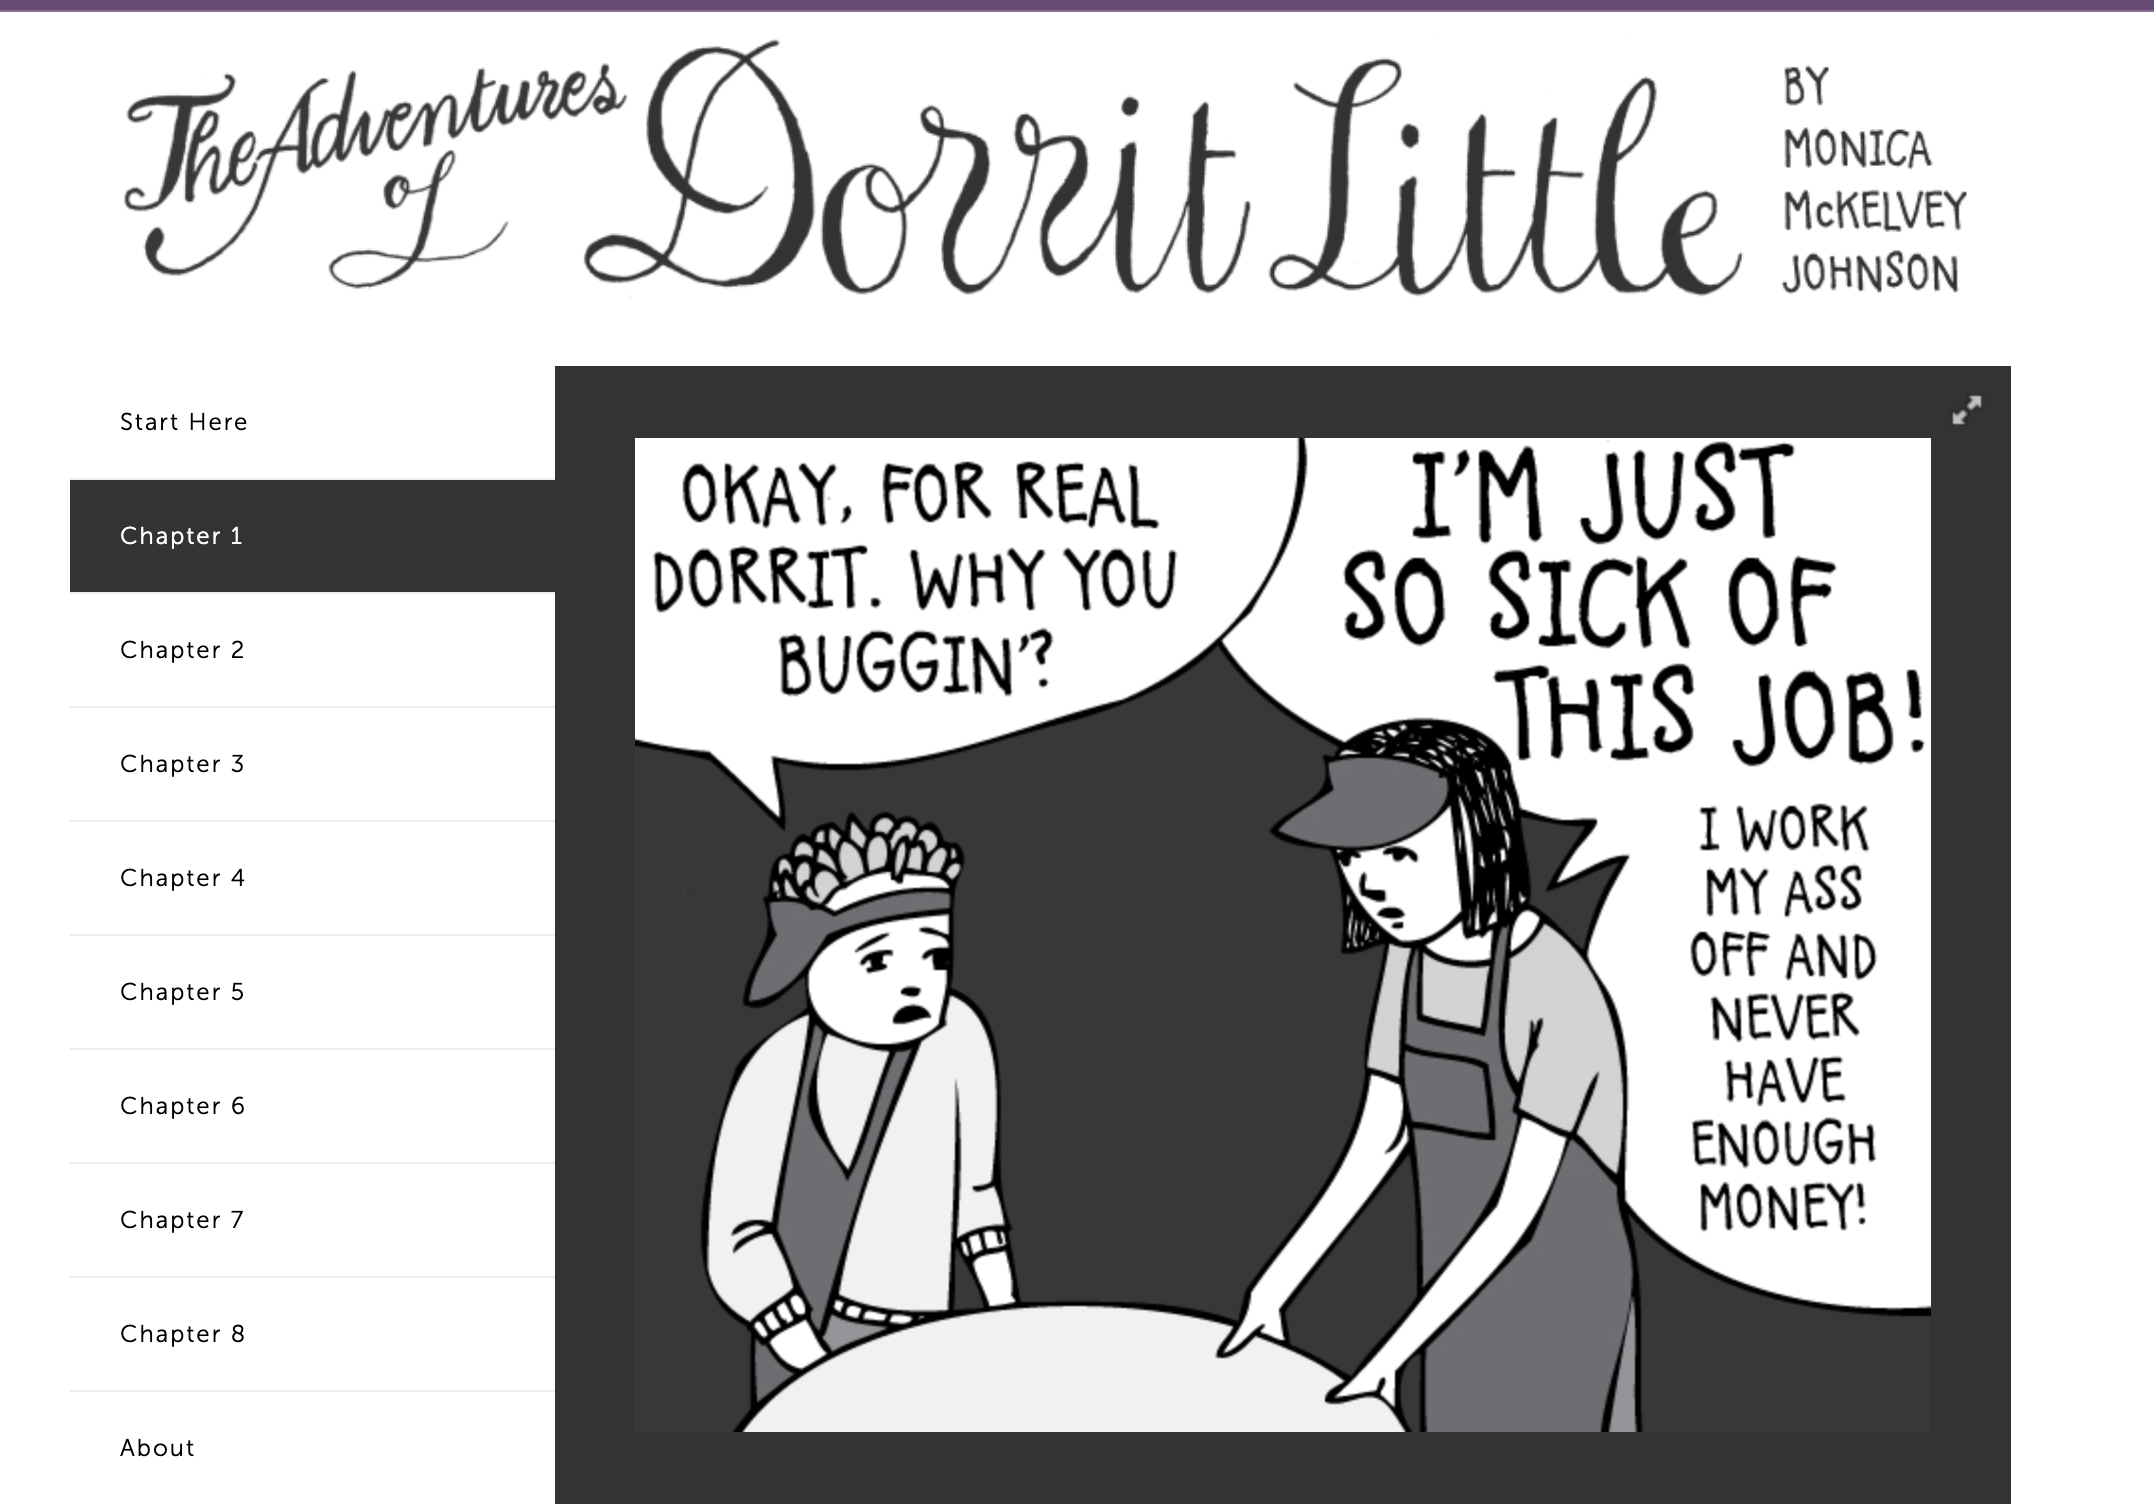 The Adventures
of
Dorrit Little
BY
MONICA
McKELVEY
JOHNSON
Start Here
Chapter 1
Chapter 2
Chapter 3
Chapter 4
Chapter 5
Chapter 6
Chapter 7
Chapter 8
About
OKAY, FOR REAL
DORRIT. WHY YOU
BUGGIN'?
I'M JUST
SO SICK OF
THIS JOB!
I WORK
MY ASS
OFF AND
NEVER
HAVE
ENOUGH
MONEY!